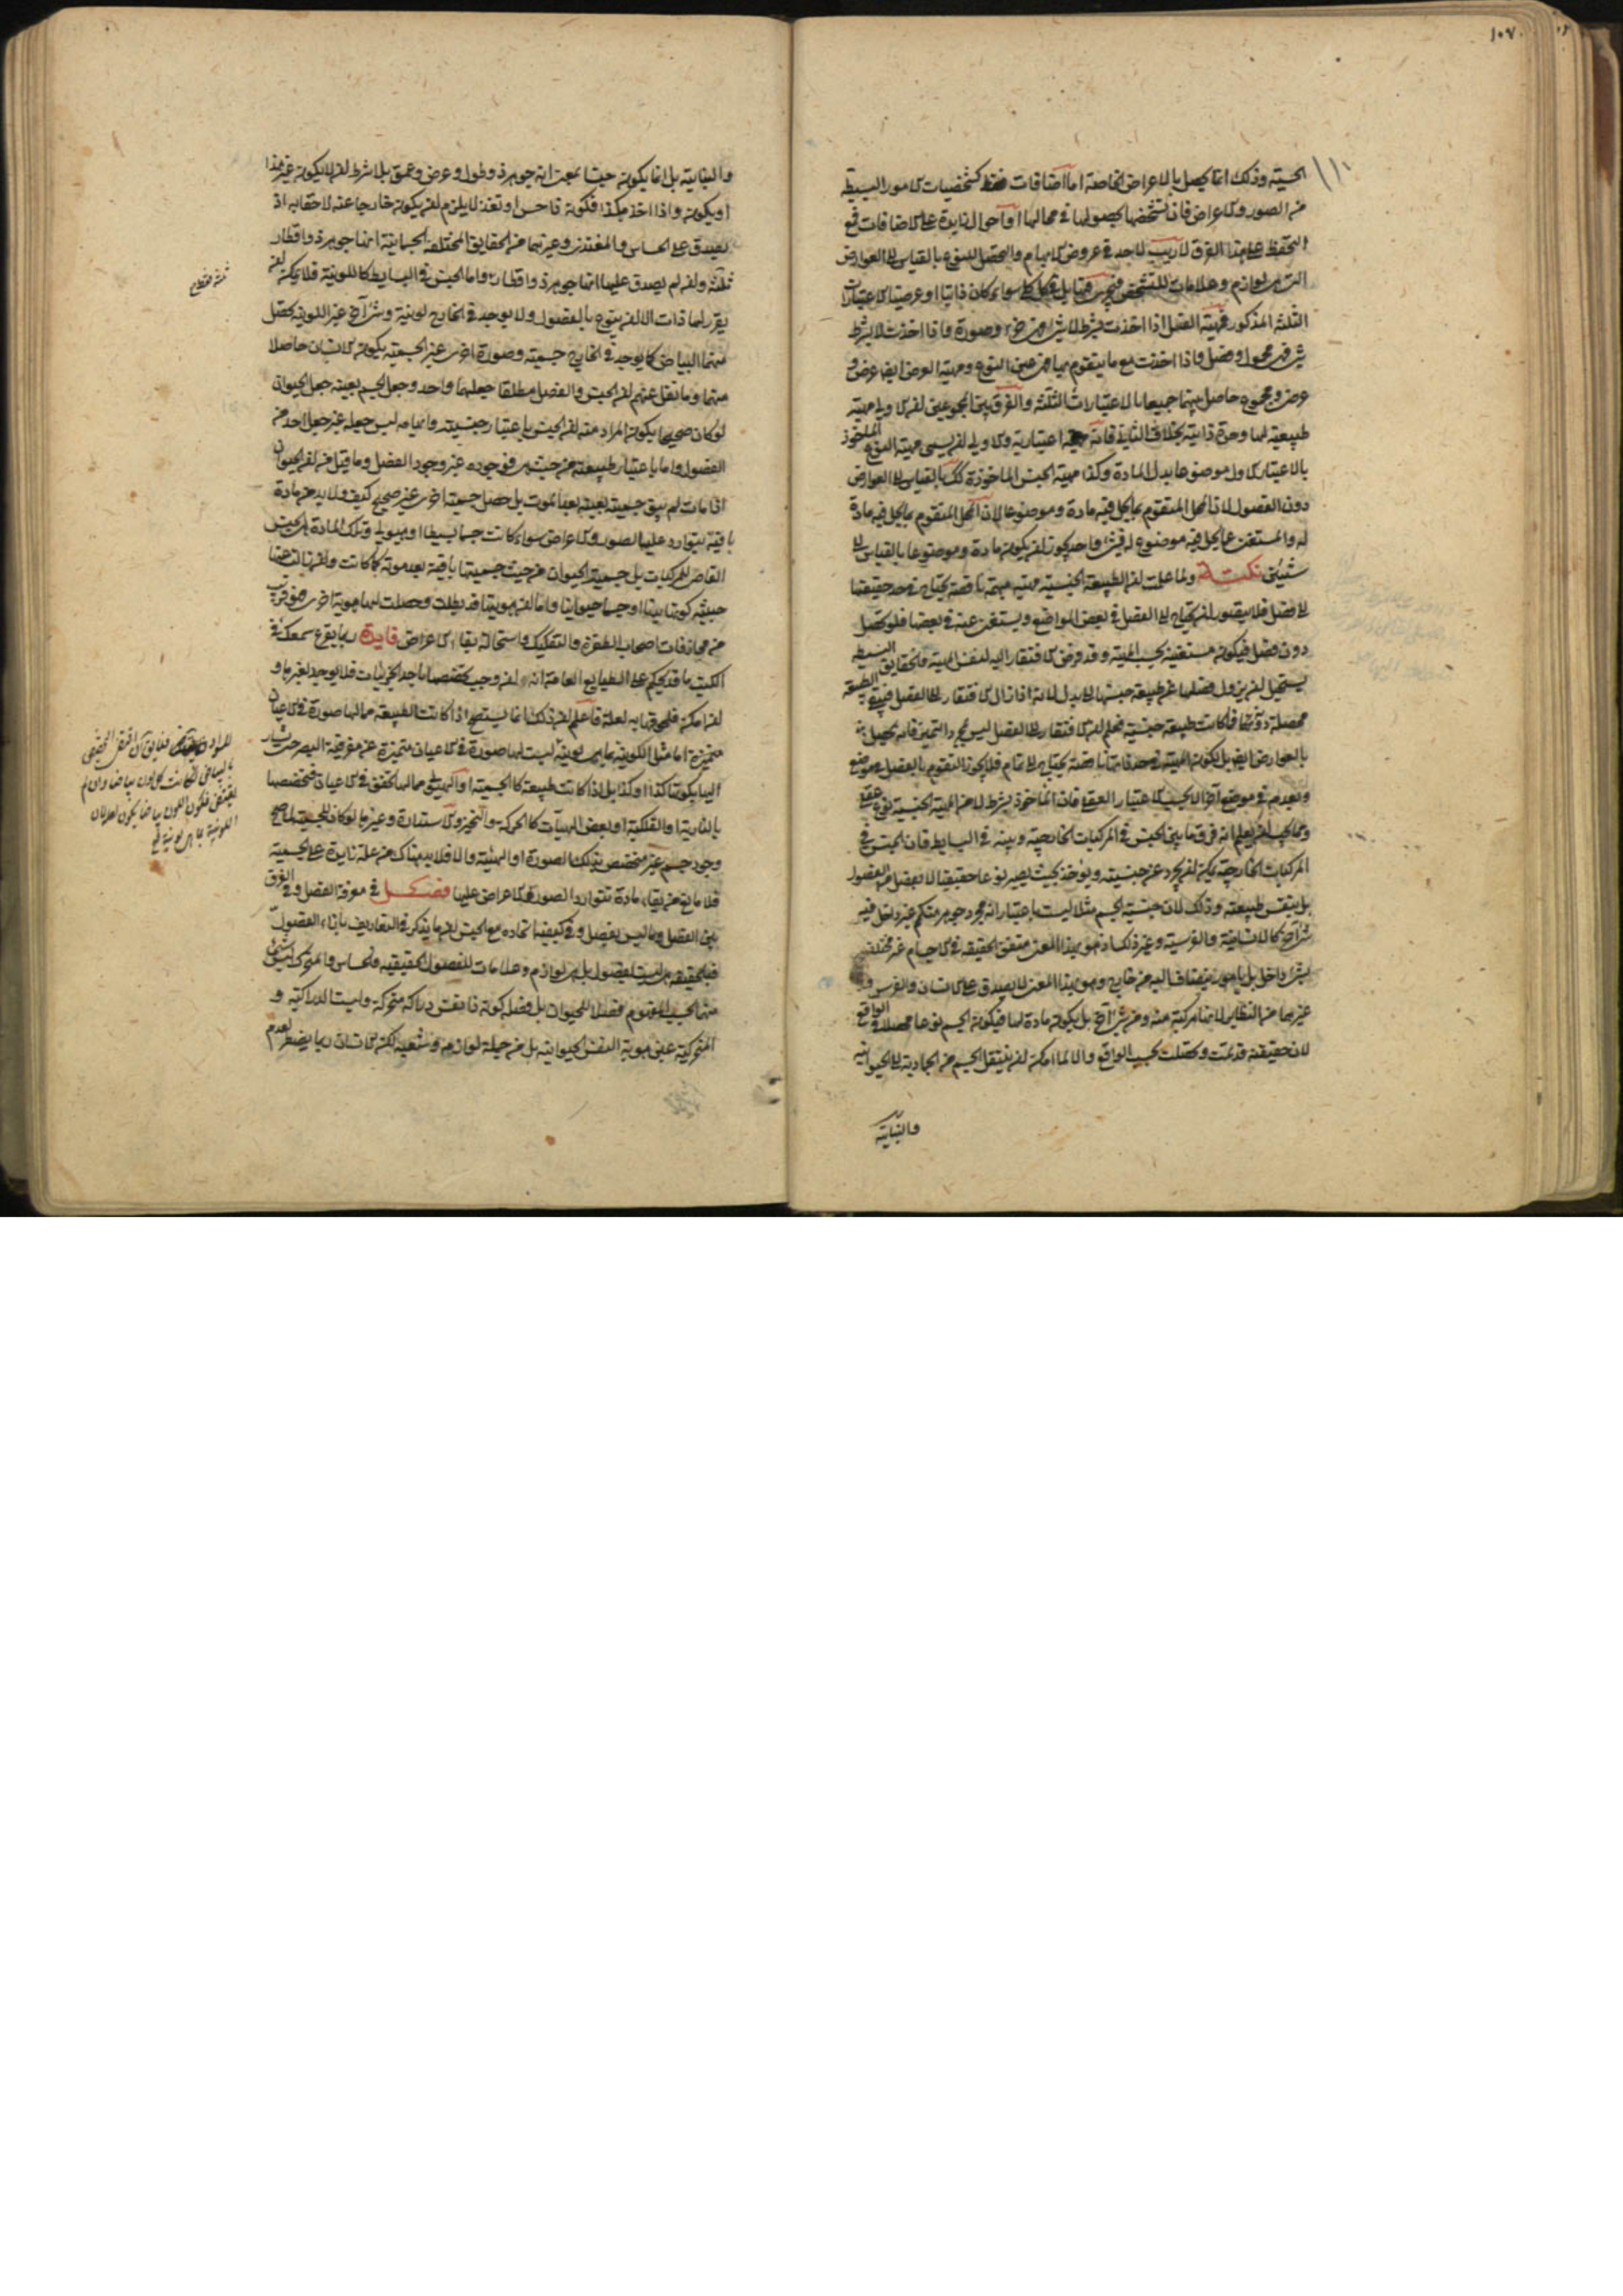 ١٠٧
الحسية وذلك انما يحصل بالاعراض الخاصة اما اضافات فقط كتشخصيات الامور البسيطة
من الصور والاعراض فان تشخصها بحصولها في محالها او احوال زايدة على الاضافات فمع
التحفظ على هذا الفرق لا ريب لاحد في عروض الابهام والتحصل للنوع بالقياس الى العوارض
التي هي لوازم وعلامات للتشخص سواء كان ذاتيا او عرضيا الاعتبارات
الثلثة المذكور فمهية الفصل اذا اخذت بشرط لا شيء فهي جزء وصورة واذا اخذت لا بشرط
شيء فهي محمول وفصل واذا اخذت مع ما يتقوم بها فهي عين النوع ومهية العرض ايضا عرضي و
عرض ومجموع حاصل منهما جميعا بالاعتبارات الثلثة والفرق بين المجموعين ان الاولى مهية
طبيعية لها وحدة ذاتية بخلاف الثانية فانه اعتبارية والاولى ان يسمى مهية النوع الماخوذ
بالاعتبار الاول موضوعا بدل المادة وكذا مهية الجنس الماخوذة كك بالقياس الى العوارض
دون الفصول لان المحل المتقوم بما يحل فيه مادة وموضوعا لان المحل المتقوم بما يحل فيه مادة
له والمستغني عما يحل فيه موضوع له فشيء واحد يجوز ان يكون مادة وموضوعا بالقياس الى
شيئين نكتة ولما علمت ان الطبيعة الجنسية مهية مبهمة ناقصة يحتاج في حد حقيقتها
الى فصل فلا يتصور ان يحتاج الى الفصل في بعض المواضع ويستغني عنه في بعضها فلو تحصل
دون فصل فيكون مستغنية بحسب المهية وقد فرض الافتقار اليه لنفس المهية فالحقايق البسيطة
يستحيل ان يزول فصلها عن طبيعة جنسها الى بدل لانه اذا زال الافتقار الى الفصل فبقي الطبيعة
محصلة دونها فما كانت طبيعة جنسية فعلم ان الافتقار الى الفصل ليس لمجرد التميز فانه يحصل
بالعوارض ايضا بل لكون المهية في حد ذاتها ناقصة يحتاج الى تمام فلا يجوز التقوم بالفصل في موضع
وبعدمه في موضع آخر الا بحسب الاعتبار العقلي فان الماخوذ بشرط لا من المهية الجنسية نوع عقلي
ومما يجب ان يعلم انه فرق ما بين الجنس في المركبات الخارجية وبينه في البسايط فان الجنس في
المركبات الخارجية يمكن ان يجرد عن جنسيته ويؤخذ بحيث يصير نوعا حقيقيا لا بفصل من الفصول
بل بنفس طبيعته وذلك لان جنسية الجسم مثلا ليست باعتبار انه مجرد جوهر متكمم غير داخل فيه
شيء آخر كالانسانية والفرسية وغير ذلك اذ هو بهذا المعنى متفق الحقيقة في الاجسام غير مختلف
بشيء داخل بل بامور ينضاف اليه من خارج وهو بهذا المعنى لا يصدق على الانسان والفرس و
غيرهما من النظاير لانها مركبة منه ومن شيء آخر بل يكون مادة لها فيكون الجسم نوعا محصلا في الواقع
لان حقيقته قد تمت وتحصلت بحسب الواقع والا لما امكن ان ينتقل الجسم من الجمادية الى الحيوانية
والنباتية
والنباتية بل انما يكون جنسا بمعنى انه جوهر ذو طول وعرض وعمق بلا شرط ان لا يكون غير هذا
او يكون واذا اخذ هكذا فكونه ذا حس او تغذ لا يلزم ان يكون خارجا عنه لاحقا به اذ
يصدق على الحساس والمغتذي وغيرهما من الحقايق المختلفة الجسمانية انها جوهر ذو اقطار
ثلثة وان لم يصدق عليها انها جوهر ذو اقطار واما الجنس في البسايط كاللونية فلا يمكن ان
يقرر لها ذات الا ان يتنوع بالفصول ولا يوجد في الخارج لونية وشيء آخر غير اللونية يحصل
منهما البياض كما يوجد في الخارج جسمية وصورة اخرى غير الجسمية يكون الانسان حاصلا
منهما وما نقل عنهم ان الجنس والفصل مطلقا جعلهما واحد وجعل الجسم بعينه جعل الحيوان
لو كان صحيحا يكون المراد منه ان الجنس باعتبار جنسيته وابهامه ليس جعله غير جعل احد من
الفصول واما باعتبار طبيعته من حيث هي فوجوده غير وجود الفصل وما قيل من ان الحيوان
اذا مات لم يبق جسمية بعينه بعد الموت بل حصل جسمية اخرى غير صحيح كيف ولا بد من مادة
باقية يتوارد عليها الصور والاعراض سواء كانت جسما بسيطا او هيولى وتلك المادة هي الجنس
القاصي للمركبات بل جسمية الحيوان من حيث جسميتها باقية بعد موته كما كانت وان زالت عنها
حيثية كونها بدنا او جسما حيوانيا واما ان هويتها قد بطلت وحصلت لها هوية اخرى فهو قريب
من مجازفات اصحاب الطفرة والتفكيك واستحالة بقاء الاعراض فايدة ربما يقرع سمعك في
الكتب ما قد يحكم على الطبايع العامة انه لو وجب تخصصها باحد الجزئيات فلا يوجد لغيرها و
ان امكن فلحوقها به لعلة فاعلم ان ذلك انما يستصح اذا كانت الطبيعة مما لها صورة في الاعيان
متميزة اما مثل اللونية بما هي لونية ليست لها صورة في الاعيان متميزة عن مفرقية البصر حتى يشار
اليها بكونها كذا او كذا بل اذا كانت طبيعة كالجسمية او الهيولى مما لها تحقق في الاعيان فتخصصها
بالنارية او الفلكية او بعض الهيآت كالحركة والتحيز والاستدارة وغيرها لو كان للجسمية لما صح
وجود جسم غير متخصص بتلك الصورة او الهيئة والا فلا بد هناك من علة زايدة على الجسمية
فلا مانع من بقاء مادة تتوارد الصور والاعراض عليها فصل في معرفة الفصل وفي الفرق
بين الفصل وما ليس بفصل وفي كيفية اتحاده مع الجنس ان ما يذكر في التعاريف بازاء الفصول
فبالحقيقة هي ليست بفصول بل هي لوازم وعلامات للفصول الحقيقية فالحساس والمتحرك ليس شيء
منهما بحسب المفهوم فصلا للحيوان بل فصله كونه ذا نفس دراكة متحركة وليست الدراكية و
المتحركية عين هوية النفس الحيوانية بل من جملة لوازمه وشعبه لكن الانسان ربما يضطر لعدم